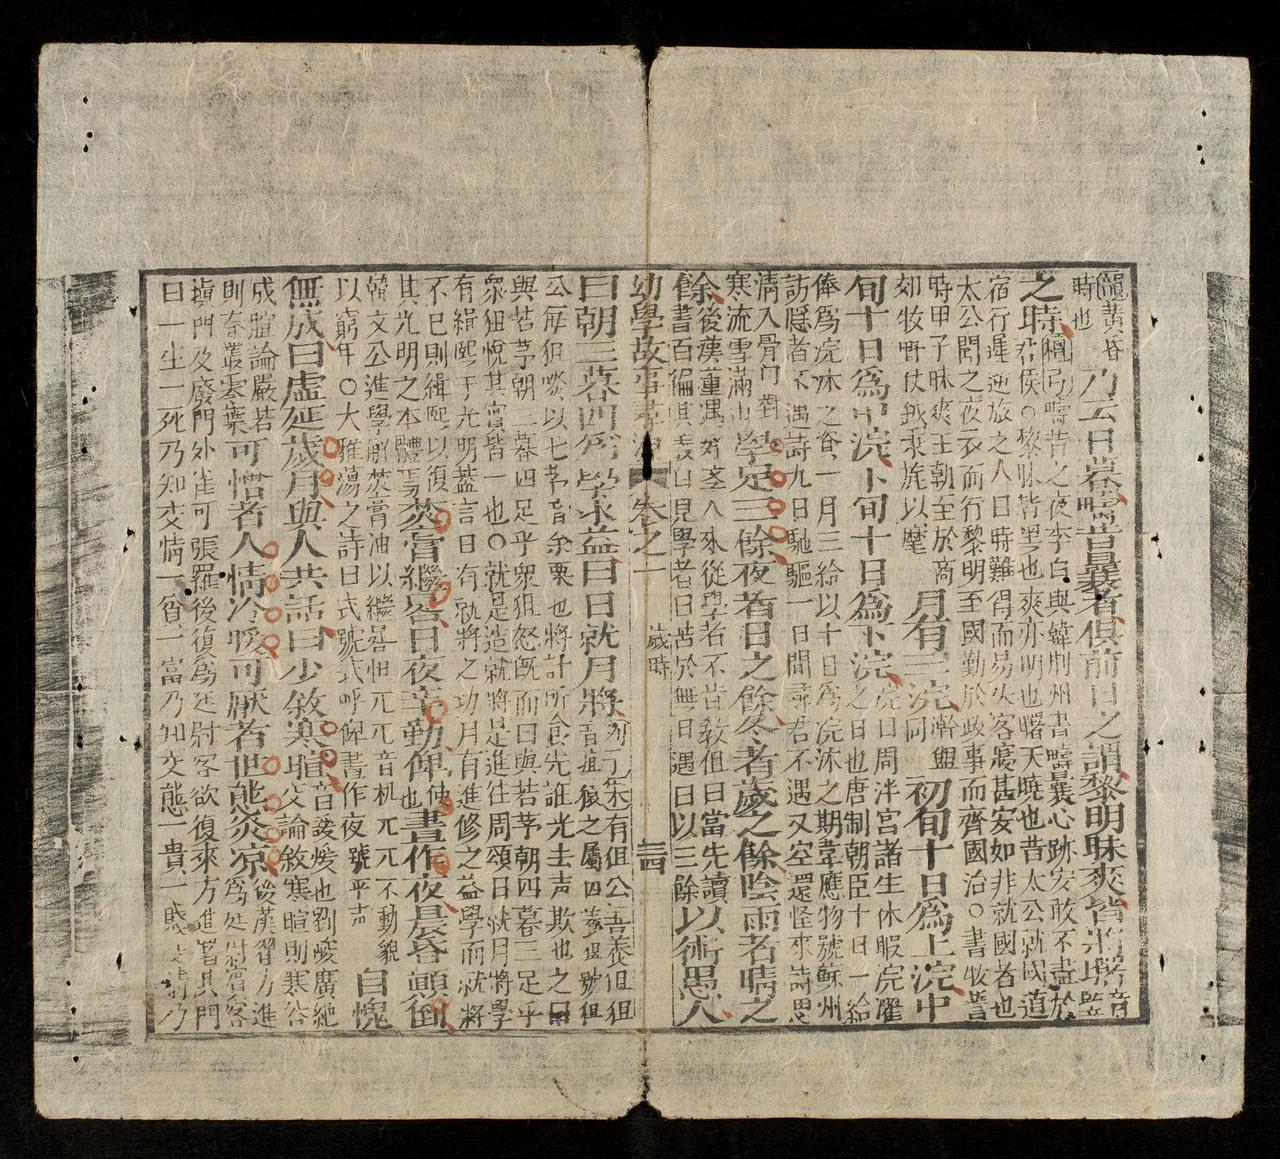 黃昏
時也
乃云日暮疇昔曩者俱前日之謂黎明昧爽皆將曙
之時
疇昔之夜李白與韓荊州書疇曩心跡安敢不盡於
君侯○黎昧皆黑也爽亦明也曙天曉也昔太公就國道
宿行遲逆旅之人曰時難得而易失客寢甚安如非就國者也
太公聞之夜衣而行黎明至國勤於政事而齊國治○書牧誓
時甲子昧爽王朝至於商
郊牧野仗鉞秉旄以麾
月有三浣
幹與
同
初旬十日爲上浣中
旬十日爲中浣下旬十日爲下浣
浣日周泮宮諸生休暇浣濯
之日也唐制朝臣十日一給
俸爲浣沐之資一月三給以十日爲浣沐之期韋應物號蘇州
訪隱者不遇詩九日馳驅一日閒尋君不遇又空還怪來詩思
清入骨門對
寒流雪滿山
學足三餘夜者日之餘冬者歲之餘陰雨者晴之
餘
後漢董遇好
書百徧其義自見學者曰苦於無日遇曰以三餘
以術愚人
幼學故事尋源
卷之一
歲時
曰朝三暮四爲學求益曰日就月將
有狙公善養狙狙
音疽猿之屬四
公每狙啖以七茅音余栗也將計所食先誑光去声欺也之曰
與若茅朝三暮四足乎衆狙怒旣而曰與若茅朝四暮三足乎
衆狙悅其實皆一也○就是造就將是進往周頌日就月將學
有緝熙于光明蓋言日有就將之功月有進修之益學而就將
不已則緝熙以復
其光明之本體焉
焚膏繼晷日夜辛勤俾晝作夜晨昏顛倒
韓文公進學解焚膏油以繼晷恒兀兀音机兀兀不動貌
以窮年○大雅蕩之詩曰式號式呼俾晝作夜號平声
自愧
無成曰虛延歲月與人共話曰少敘寒暄
音諼煖也劉峻廣絶
交論敘寒暄則寒谷
成暄論嚴若
則春叢零葉
可憎者人情冷暖可厭者世態炎凉
後漢翟方進
爲廷尉賓客
塡門及廢門外雀可張羅後復爲廷尉客欲復來方進署其門
曰一生一死乃知交情一貧一富乃知交態一貴一賤交情乃